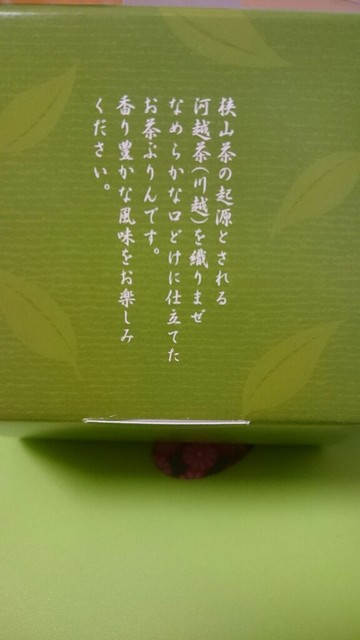 狭山茶の起源とされる
河越茶(川越)を織りまぜ
なめらかな口どけに仕立てた
お茶ぷりんです。
香り豊かな風味をお楽しみ
ください。